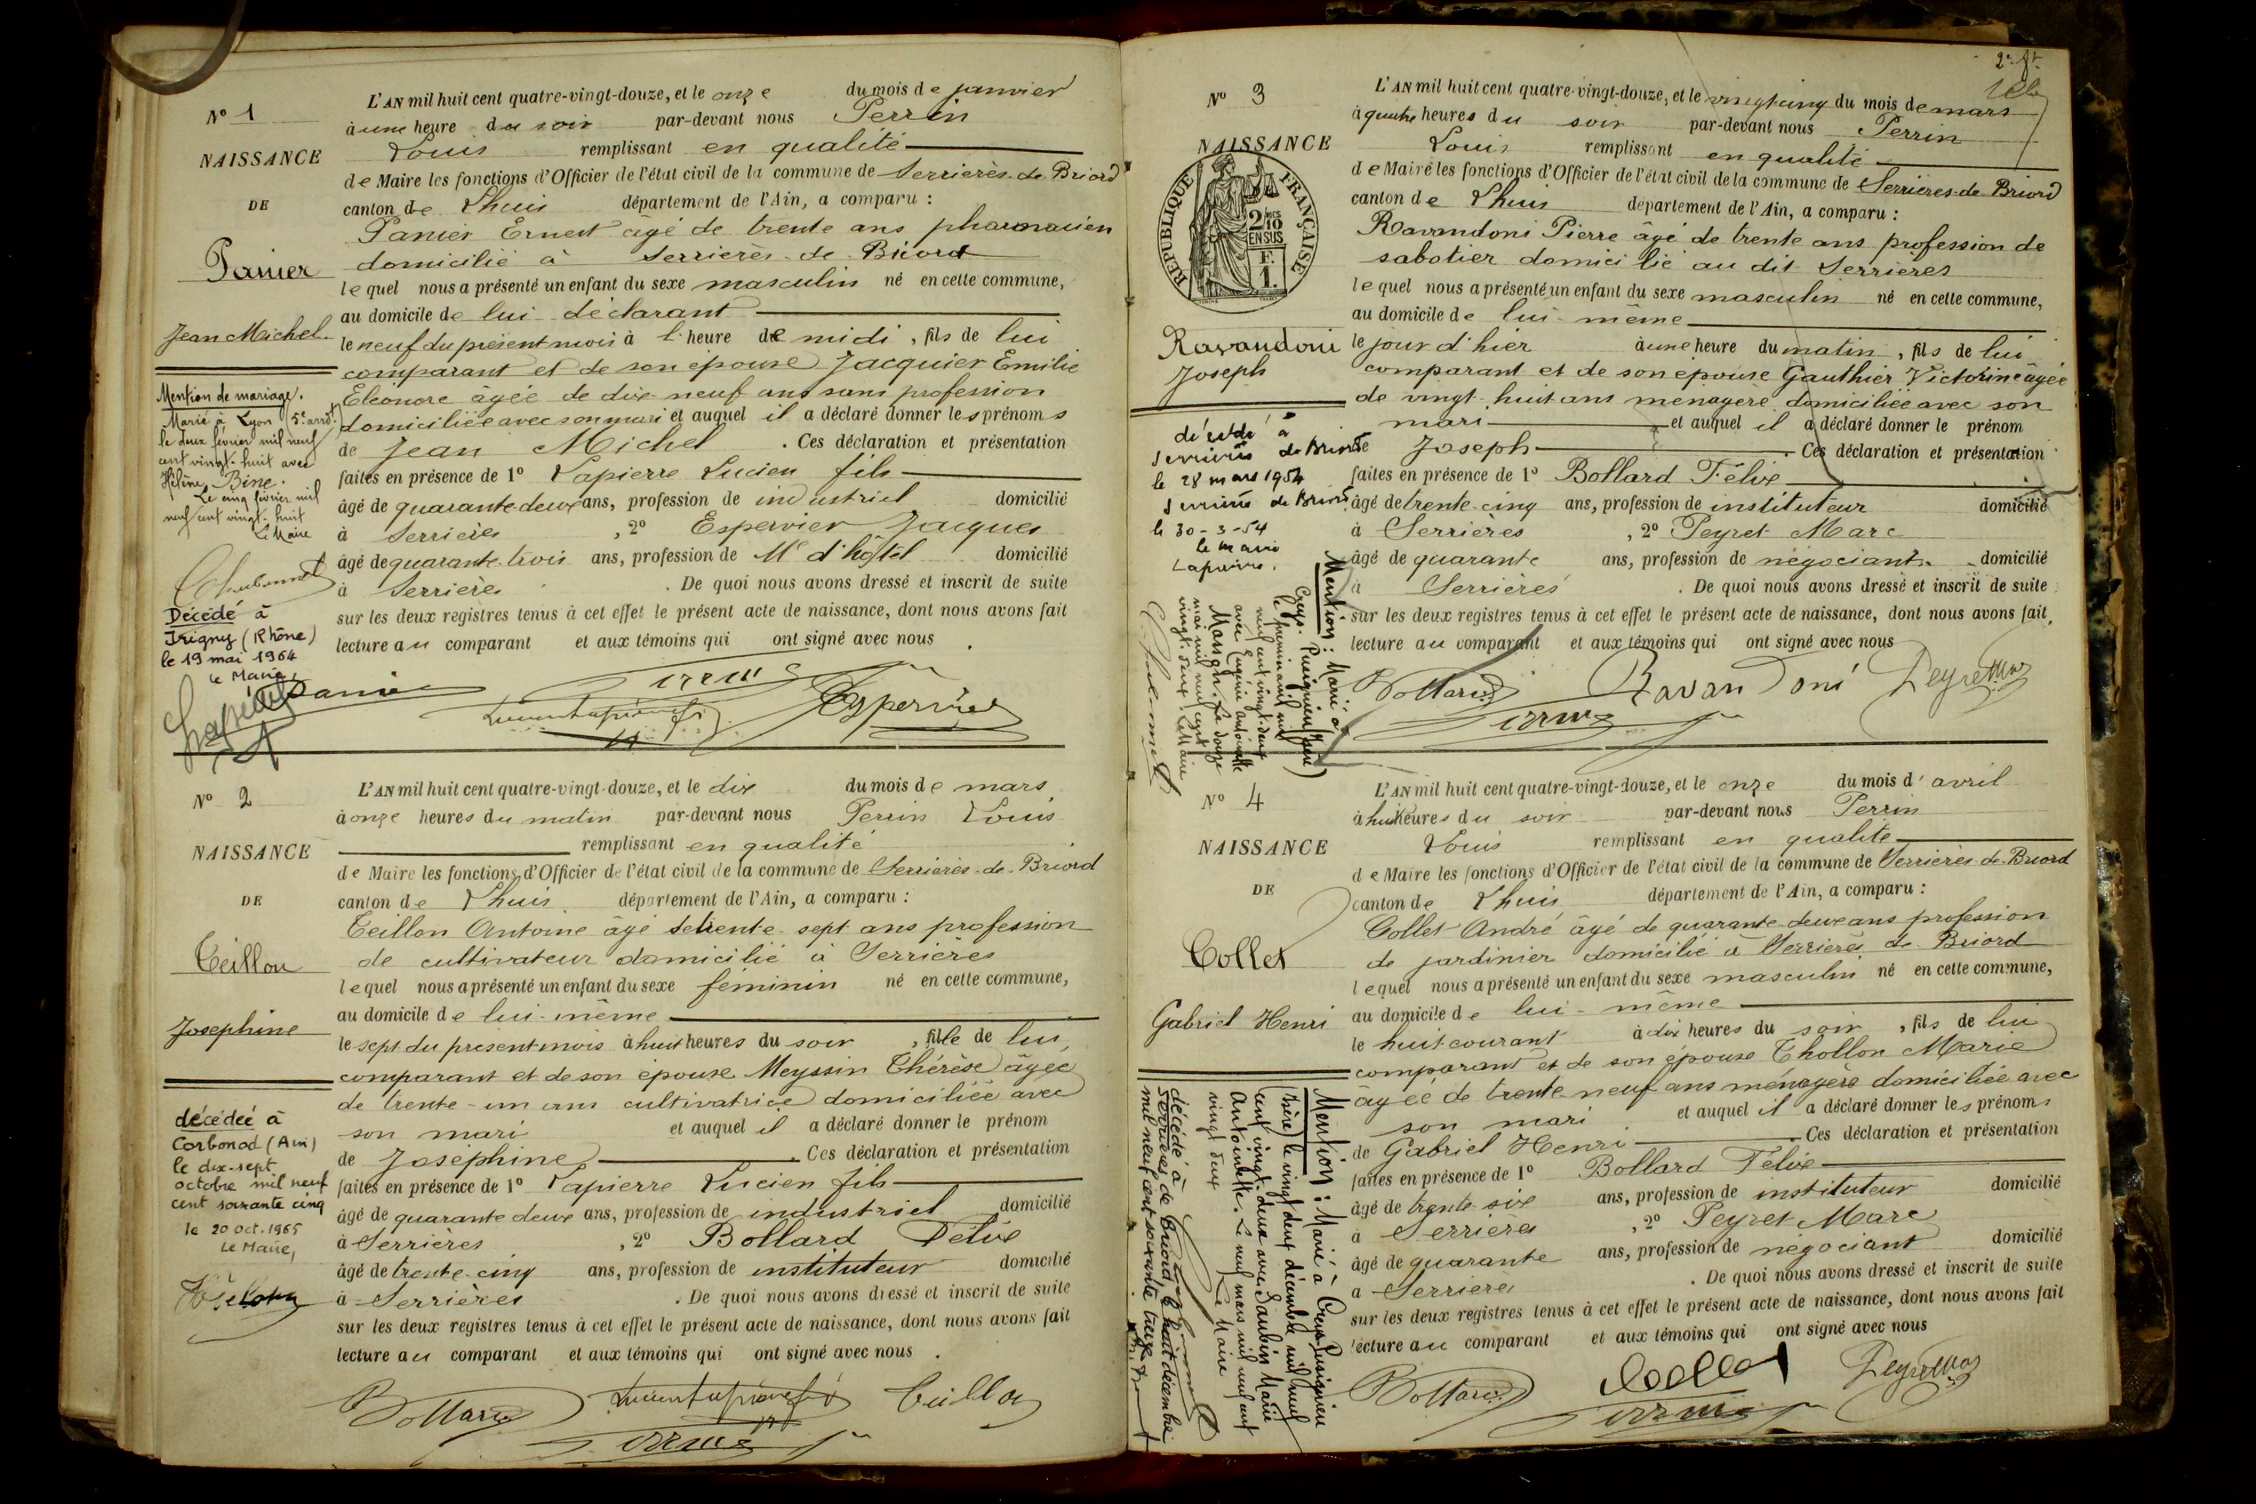 N° 1
NAISSANCE
DE
Panier
Jean Michel
Mention de mariage.
Marié à Lyon (5e arrdt)
le deux février mil neuf
cent vingt-huit avec
Hélène Bine.
Le cinq février mil
neuf cent vingt-huit
Le Maire
Décédé à
Irigny (Rhône)
le 19 mai 1964
Le Maire,
L'AN mil huit cent quatre-vingt-douze, et le onze du mois de janvier
à une heure du soir par-devant nous Perrin
Louis remplissant en qualité
de Maire les fonctions d'Officier de l'état civil de la commune de Serrières-de-Briord
canton de Lhuis département de l'Ain, a comparu :
Panier Ernest âgé de trente ans pharmacien
domicilié à Serrières-de-Briord
lequel nous a présenté un enfant du sexe masculin né en cette commune,
au domicile de lui déclarant
le neuf du présent mois à l'heure de midi, fils de lui
comparant et de son épouse Jacquier Emilie
Eléonore âgée de dix neuf ans sans profession
domiciliée avec son mari et auquel il a déclaré donner les prénoms
de Jean Michel. Ces déclaration et présentation
faites en présence de 1° Lapierre Lucien fils
âgé de quarante-deux ans, profession de industriel domicilié
à Serrières, 2° Espervier Jacques
âgé de quarante trois ans, profession de Me d'hôtel domicilié
à Serrières. De quoi nous avons dressé et inscrit de suite
sur les deux registres tenus à cet effet le présent acte de naissance, dont nous avons fait
lecture au comparant et aux témoins qui ont signé avec nous.
N° 2
NAISSANCE
DE
Teillon
Josephine
décédée à
Corbonod (Ain)
le dix-sept
octobre mil neuf
cent soixante cinq
le 20 Oct. 1965
Le Maire,
L'AN mil huit cent quatre-vingt-douze, et le dix du mois de mars
à onze heures du matin par-devant nous Perrin Louis
remplissant en qualité
de Maire les fonctions d'Officier de l'état civil de la commune de Serrières-de-Briord
canton de Lhuis département de l'Ain, a comparu :
Teillon Antoine âgé de trente sept ans profession
de cultivateur domicilié à Serrières
lequel nous a présenté un enfant du sexe féminin né en cette commune,
au domicile de lui-même
le sept du présent mois à huit heures du soir, fille de lui
comparant et de son épouse Meyssin Thérèse âgée
de trente-un ans cultivatrice domiciliée avec
son mari et auquel il a déclaré donner le prénom
de Josephine. Ces déclaration et présentation
faites en présence de 1° Lapierre Lucien fils
âgé de quarante deux ans, profession de industriel domicilié
à Serrières, 2° Bollard Félix
âgé de trente-cinq ans, profession de instituteur domicilié
à Serrières. De quoi nous avons dressé et inscrit de suite
sur les deux registres tenus à cet effet le présent acte de naissance, dont nous avons fait
lecture au comparant et aux témoins qui ont signé avec nous.
Bollard Teillon
N° 3
NAISSANCE
RÉPUBLIQUE FRANÇAISE
2/10 EN SUS
F. 1.
Ravandoni
Joseph
décédé à
Serrières de Briord
le 28 mars 1954
Serrières de Briord
le 30-3-54
le maire
Lapierre.
Mention : Marié à
Creys-Pusignieu (Isère)
avec Eugénie Antoinette
L'AN mil huit cent quatre-vingt-douze, et le vingt cinq du mois de mars
à quatre heures du soir par-devant nous Perrin
Louis remplissant en qualité
de Maire les fonctions d'Officier de l'état civil de la commune de Serrières-de-Briord
canton de Lhuis département de l'Ain, a comparu :
Ravandoni Pierre âgé de trente ans profession de
sabotier domicilié au dit Serrières
lequel nous a présenté un enfant du sexe masculin né en cette commune,
au domicile de lui-même
le jour d'hier à une heure du matin, fils de lui
comparant et de son épouse Gauthier Victorine âgée
de vingt-huit ans ménagère domiciliée avec son
mari et auquel il a déclaré donner le prénom
de Joseph. Ces déclaration et présentation
faites en présence de 1° Bollard Félix
âgé de trente-cinq ans, profession de instituteur domicilié
à Serrières, 2° Peyret Marc
âgé de quarante ans, profession de négociant domicilié
à Serrières. De quoi nous avons dressé et inscrit de suite
sur les deux registres tenus à cet effet le présent acte de naissance, dont nous avons fait
lecture au comparant et aux témoins qui ont signé avec nous
Bollard Ravandoni Peyret Marc
N° 4
NAISSANCE
DE
Collet
Gabriel Henri
Mention : Marié à Creys-Pusignieu
(Isère) le vingt deux décembre mil neuf
cent vingt-deux avec Saubin Marie
Antoinette. Le neuf mars mil neuf cent
vingt deux Le Maire
décédé à
Serrières de Briord, le huit décembre
mil neuf cent soixante treize
L'AN mil huit cent quatre-vingt-douze, et le onze du mois d'avril
à huit heures du soir par-devant nous Perrin
Louis remplissant en qualité
de Maire les fonctions d'Officier de l'état civil de la commune de Serrières-de-Briord
canton de Lhuis département de l'Ain, a comparu :
Collet André âgé de quarante-deux ans profession
de jardinier domicilié à Serrières de Briord
lequel nous a présenté un enfant du sexe masculin né en cette commune,
au domicile de lui-même
le huit courant à dix heures du soir, fils de lui
comparant et de son épouse Thollon Marie
âgée de trente neuf ans ménagère domiciliée avec
son mari et auquel il a déclaré donner les prénoms
de Gabriel Henri. Ces déclaration et présentation
faites en présence de 1° Bollard Félix
âgé de trente-six ans, profession de instituteur domicilié
à Serrières, 2° Peyret Marc
âgé de quarante ans, profession de négociant domicilié
à Serrières. De quoi nous avons dressé et inscrit de suite
sur les deux registres tenus à cet effet le présent acte de naissance, dont nous avons fait
lecture au comparant et aux témoins qui ont signé avec nous
Bollard Collet Peyret Marc